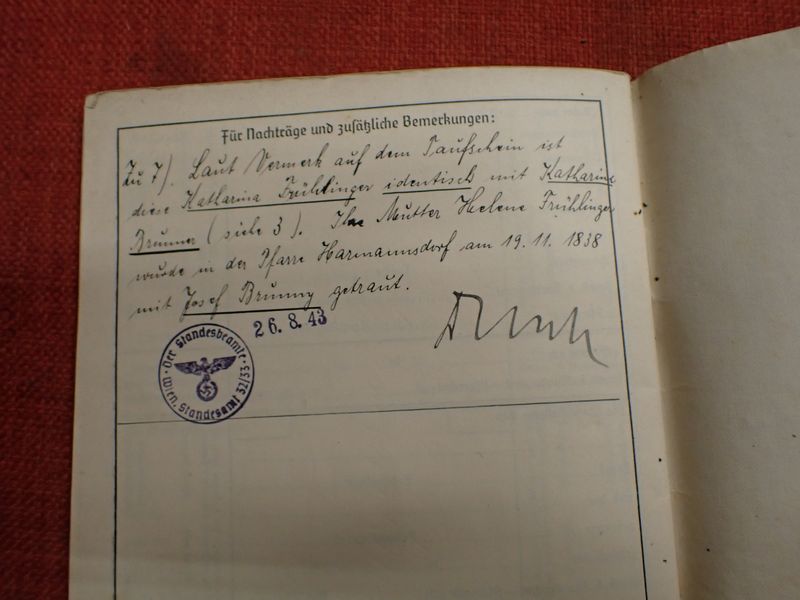 Für Nachträge und zusätzliche Bemerkungen:
Zu 7). Laut Vermerk auf dem Taufschein ist
diese Katharina Frühlinger identisch mit Katharina
Brunner (siehe 3). Ihre Mutter Helene Frühlinger
wurde in der Pfarre Harmannsdorf am 19. 11. 1838
mit Josef Brunny getraut.
26. 8. 43
· der Standesbeamte ·
Wien, Standesamt 32/33